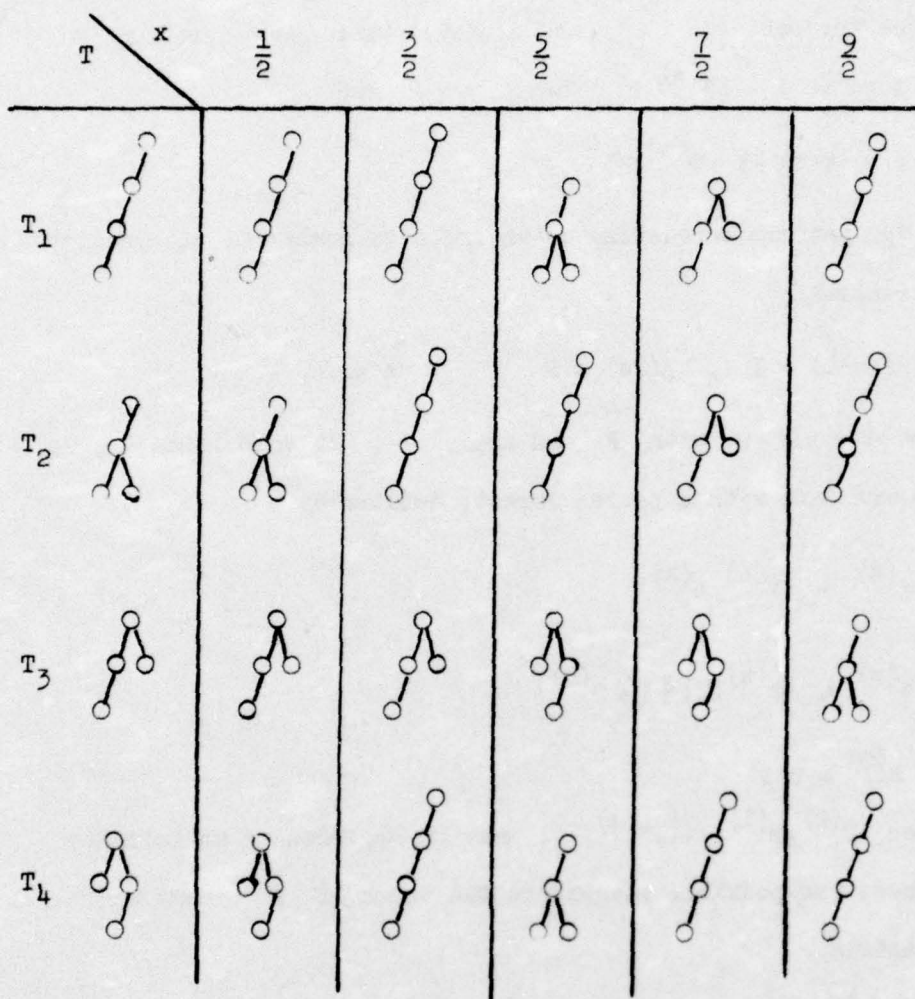 T x 1/2 3/2 5/2 7/2 9/2
T1
T2
T3
T4